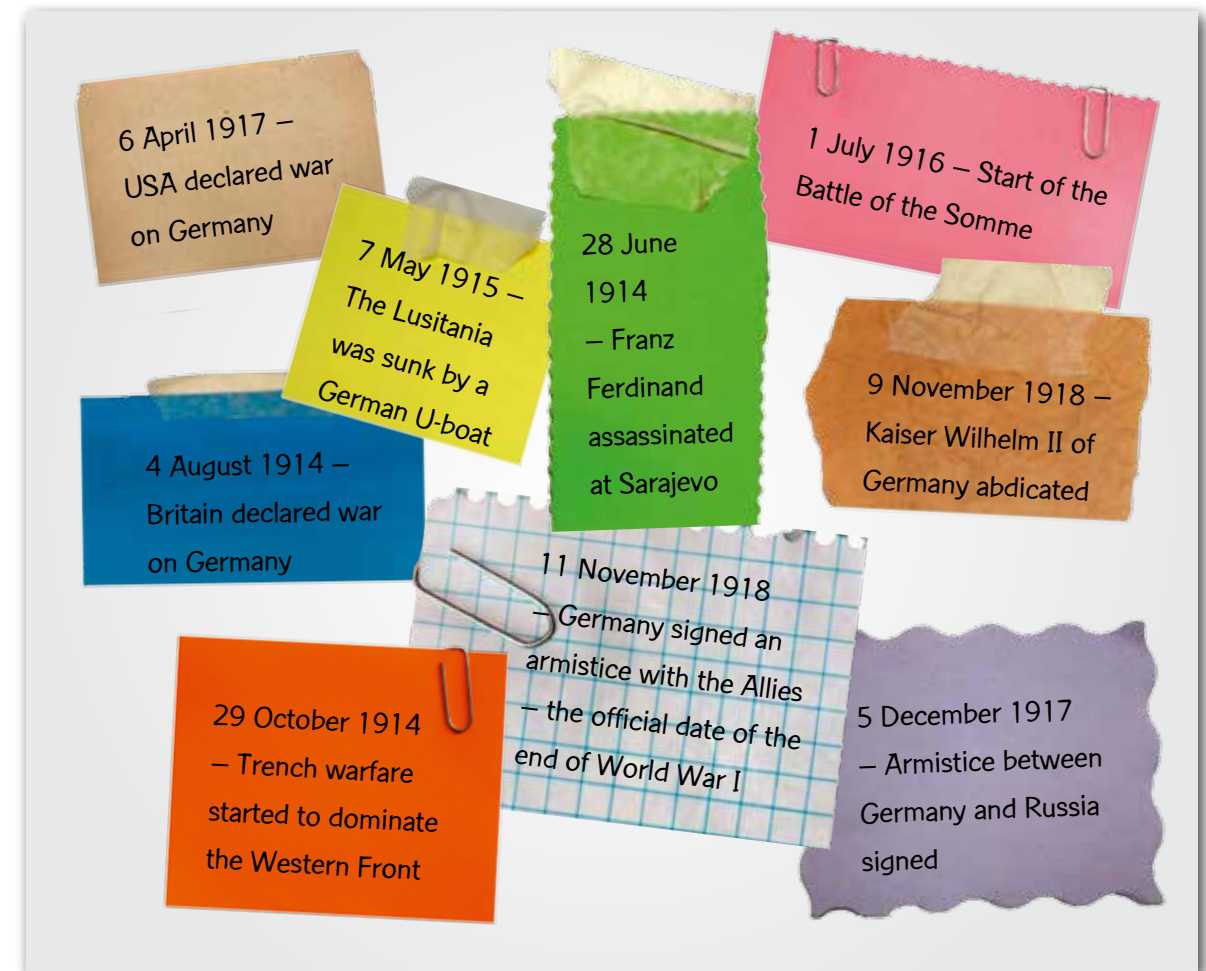 6 April 1917 –
USA declared war
on Germany
7 May 1915 –
The Lusitania
was sunk by a
German U-boat
28 June
1914
– Franz
Ferdinand
assassinated
at Sarajevo
1 July 1916 – Start of the
Battle of the Somme
9 November 1918 –
Kaiser Wilhelm II of
Germany abdicated
4 August 1914 –
Britain declared war
on Germany
11 November 1918
– Germany signed an
armistice with the Allies
– the official date of the
end of World War I
29 October 1914
– Trench warfare
started to dominate
the Western Front
5 December 1917
– Armistice between
Germany and Russia
signed